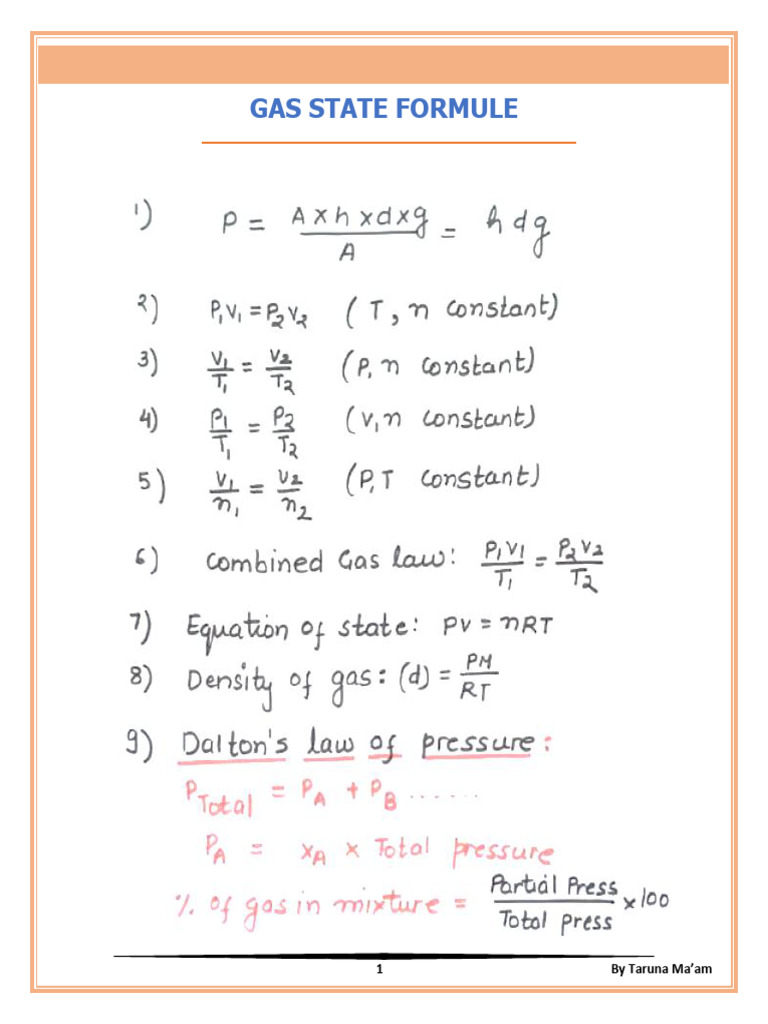 GAS STATE FORMULE
1) P = A x h x d x g / A = h d g
2) P₁V₁ = P₂V₂ (T, n constant)
3) V₁/T₁ = V₂/T₂ (P, n constant)
4) P₁/T₁ = P₂/T₂ (V, n constant)
5) V₁/n₁ = V₂/n₂ (P, T constant)
6) Combined Gas law: P₁V₁/T₁ = P₂V₂/T₂
7) Equation of state: PV = nRT
8) Density of gas: (d) = PM/RT
9) Dalton's law of pressure:
P Total = P_A + P_B ......
P_A = x_A x Total pressure
% of gas in mixture = Partial Press / Total press x 100
1 By Taruna Ma’am